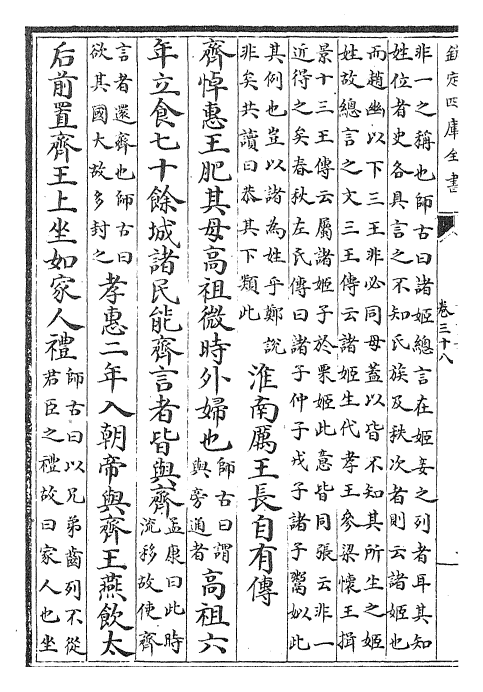 欽定四庫全書
卷三十八
非一之稱也師古曰諸姬總言在姬妾之列者耳其知
姓位者史各具言之不知氏族及秩次者則云諸姬也
而趙幽以下三王非必同母蓋以皆不知其所生之姬
姓故總言之文三王傳云諸姬生代孝王參梁懷王揖
景十三王傳云屬諸姬子於栗姬此意皆同張云非一
近得之矣春秋左氏傳曰諸子仲子戎子諸子鬻姒此
其例也豈以諸為姓乎鄭說
非矣共讀曰恭其下類此
淮南厲王長自有傳
齊悼惠王肥其母高祖微時外婦也
師古曰謂
與旁通者
高祖六
年立食七十餘城諸民能齊言者皆與齊
孟康曰此時
流移故使齊
言者還齊也師古曰
欲其國大故多封之
孝惠二年入朝帝與齊王燕飲太
后前置齊王上坐如家人禮
師古曰以兄弟齒列不從
君臣之禮故曰家人也坐